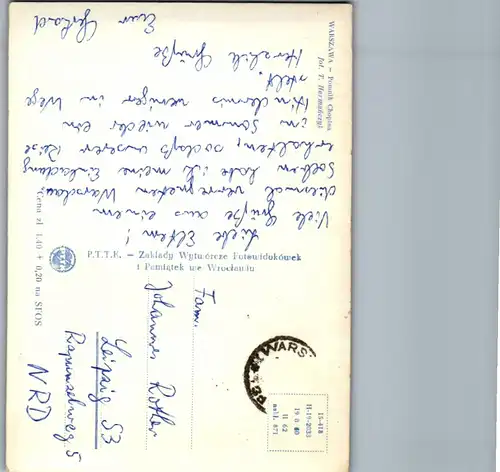 WARSZAWA – Pomnik Chopina
fot. T. Hermańczyk
Liebe Eltern!
Viele Grüße aus einem
diesmal verregneten Warschau.
Soeben habe ich meine Einladung
erhalten, sodaß unserer Reise
im Sommer wieder ein
Hindernis weniger im Wege
steht.
Herzliche Grüße
Euer Gerhard
Cena zł 1,40 + 0,20 na SFOS
P.T.T.K. – Zakłady Wytwórcze Fotowidokówek
i Pamiątek we Wrocławiu
Fam.
Johannes Rotter
Leipzig S3
Rapunzelweg 5
NRD
WARS
15-418
H-19-2033
II 62
nakł. 871